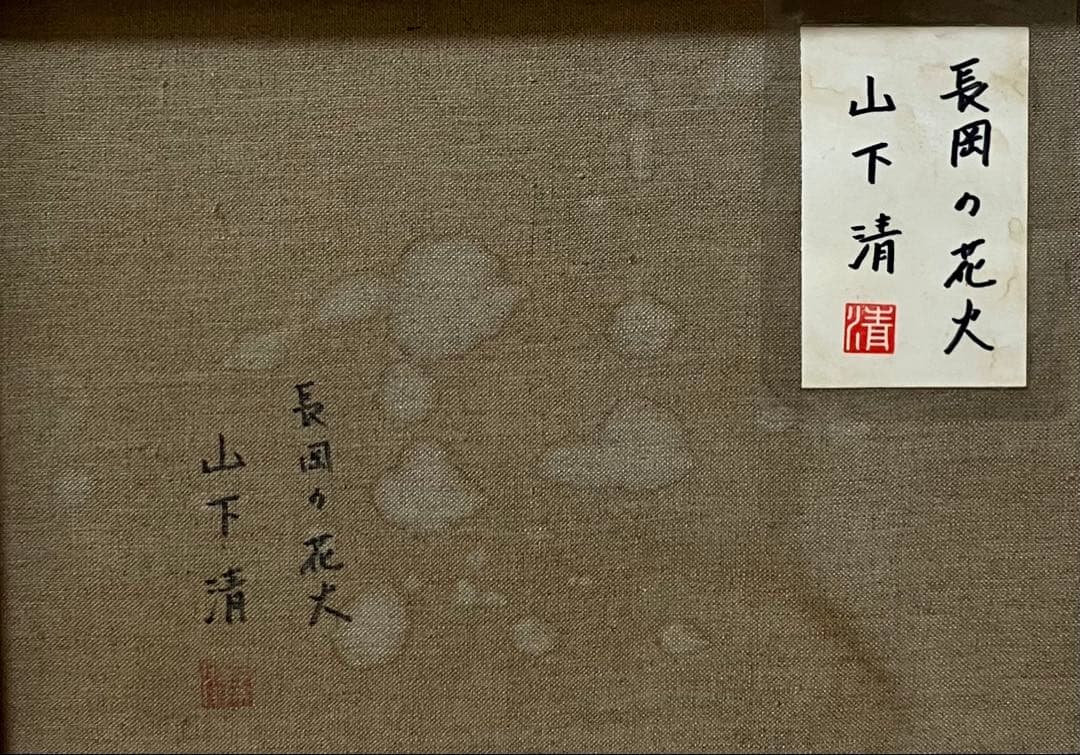 長岡の花火
山下清
清
長岡の花火
山下清